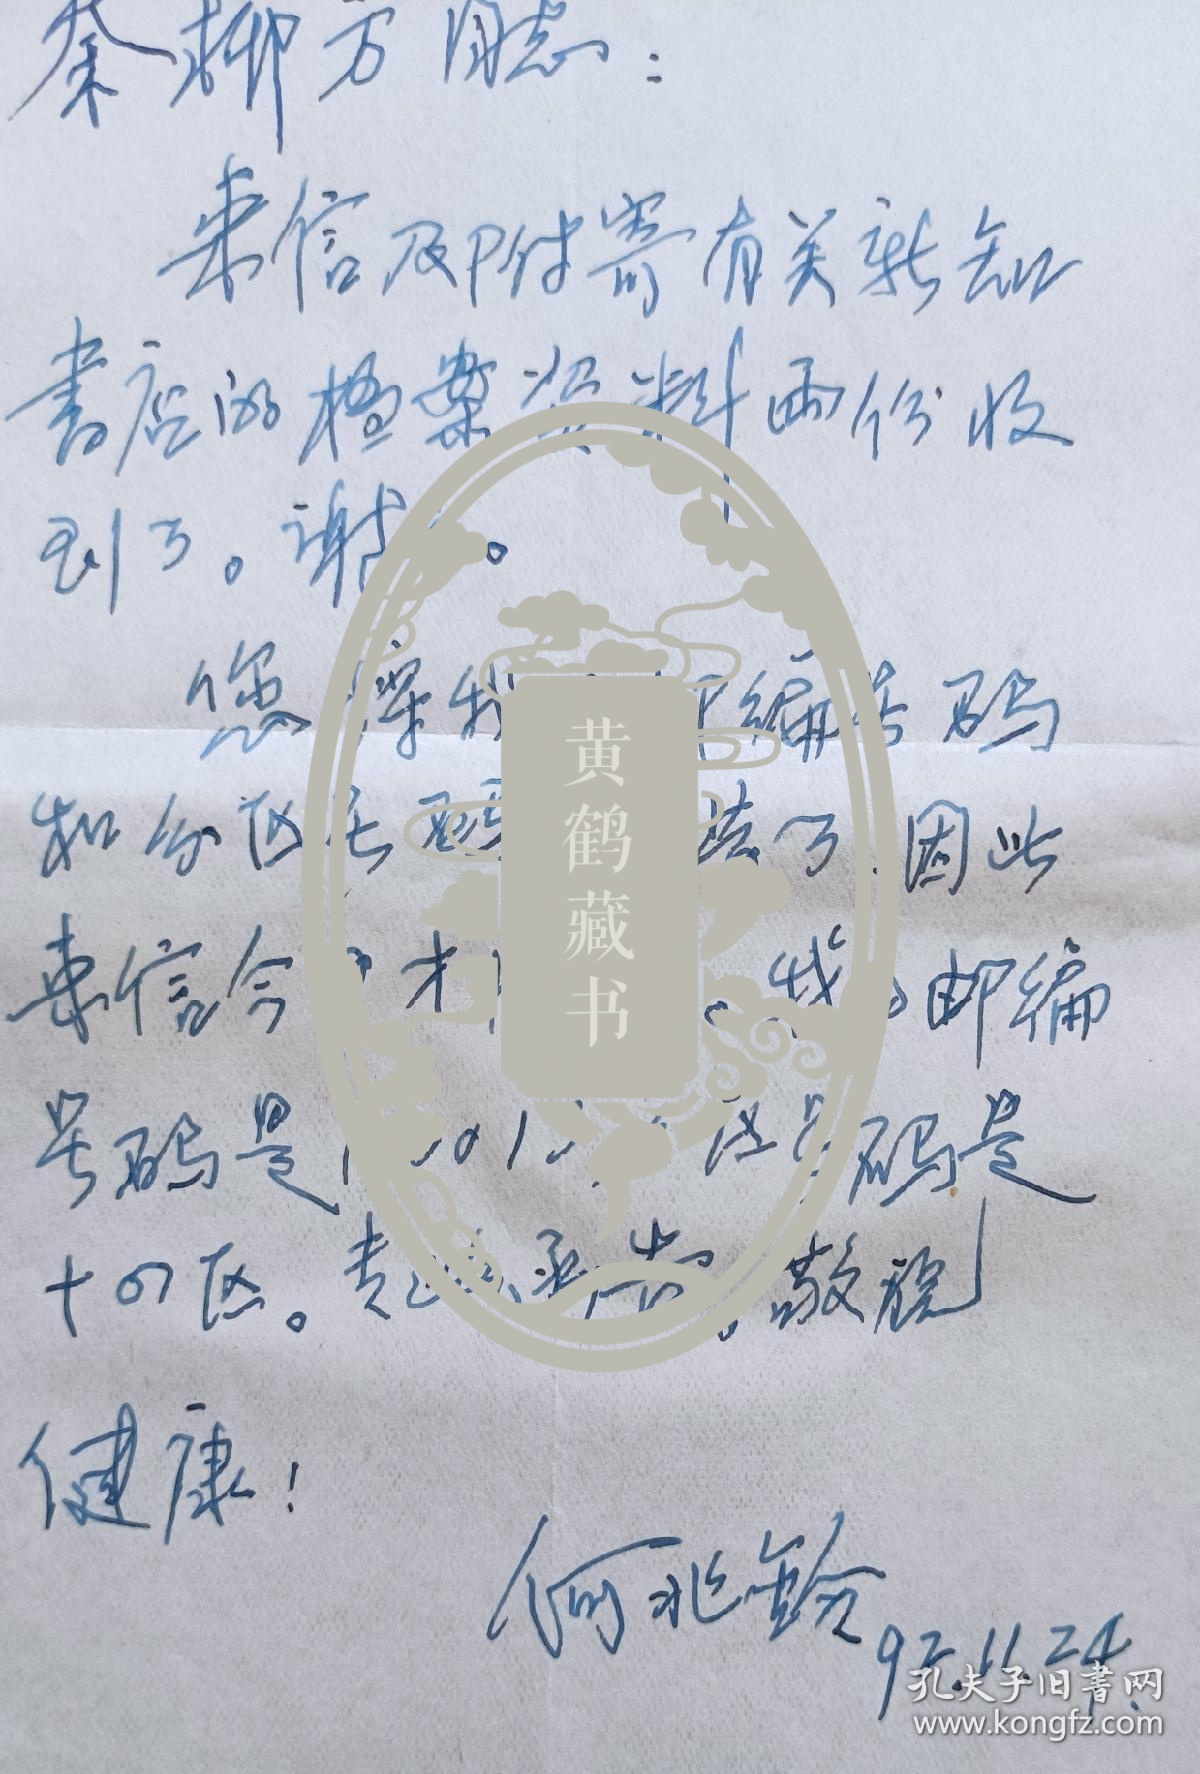 秦柳方同志：
来信及附寄有关新知
書店的档案资料两份收
到了。谢。
您 编号码
和分区号码 了，因此
来信今 才 我的邮编
号码是 区号码是
十四区。专 敬祝
健康！
何兆铨
92.11.24.
黄鹤藏书
孔夫子旧書网
www.kongfz.com